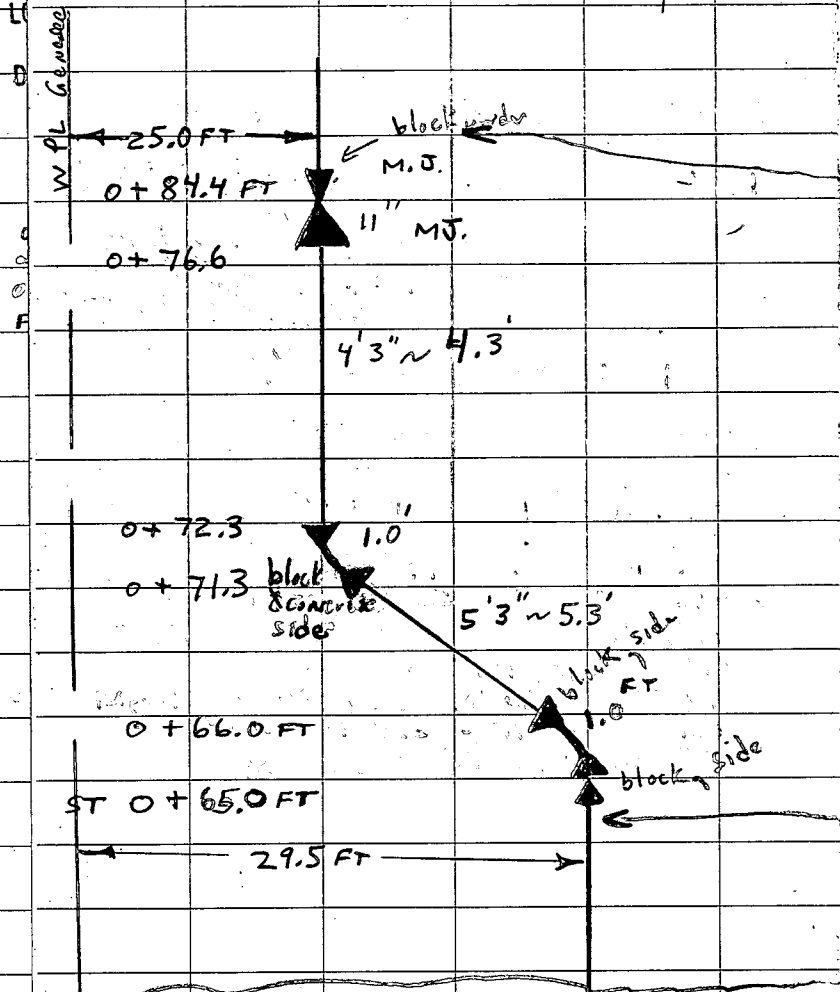 W PL Genesee
25.0 FT
block
M.J.
0 + 84.4 FT
11" MJ.
0 + 76.6
4'3" ~ 4.3'
0 + 72.3
1.0'
0 + 71.3
block
& concrete
side
5'3" ~ 5.3'
block side
FT
1.0
0 + 66.0 FT
block side
ST 0 + 65.0 FT
29.5 FT